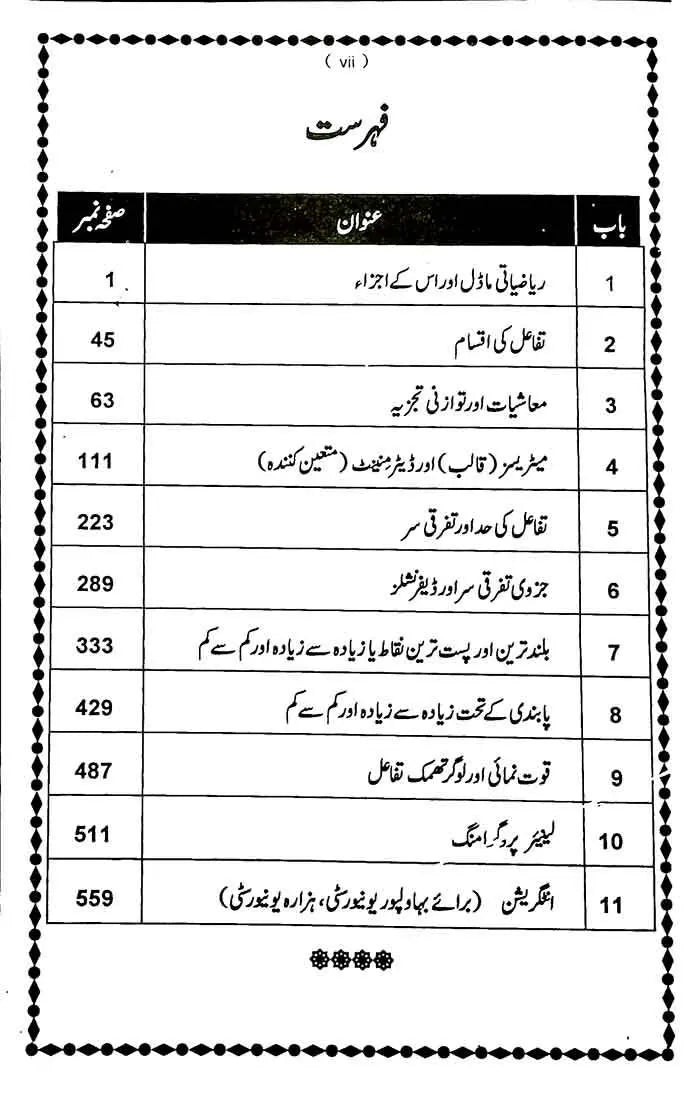 ( vii )
فہرست
باب عنوان صفحہ نمبر
1 ریاضیاتی ماڈل اور اس کے اجزاء 1
2 تفاعل کی اقسام 45
3 معاشیات اور توازنی تجزیہ 63
4 میٹریسز (قالب) اور ڈیٹرمینٹ (متعین کنندہ) 111
5 تفاعل کی حد اور تفرقی سر 223
6 جزوی تفرقی سر اور ڈیفرنشلز 289
7 بلند ترین اور پست ترین نقاط یا زیادہ سے زیادہ اور کم سے کم 333
8 پابندی کے تحت زیادہ سے زیادہ اور کم سے کم 429
9 قوت نمائی اور لوگرتھمک تفاعل 487
10 لینیئر پروگرامنگ 511
11 انٹگریشن (برائے بہاولپور یونیورسٹی، ہزارہ یونیورسٹی) 559